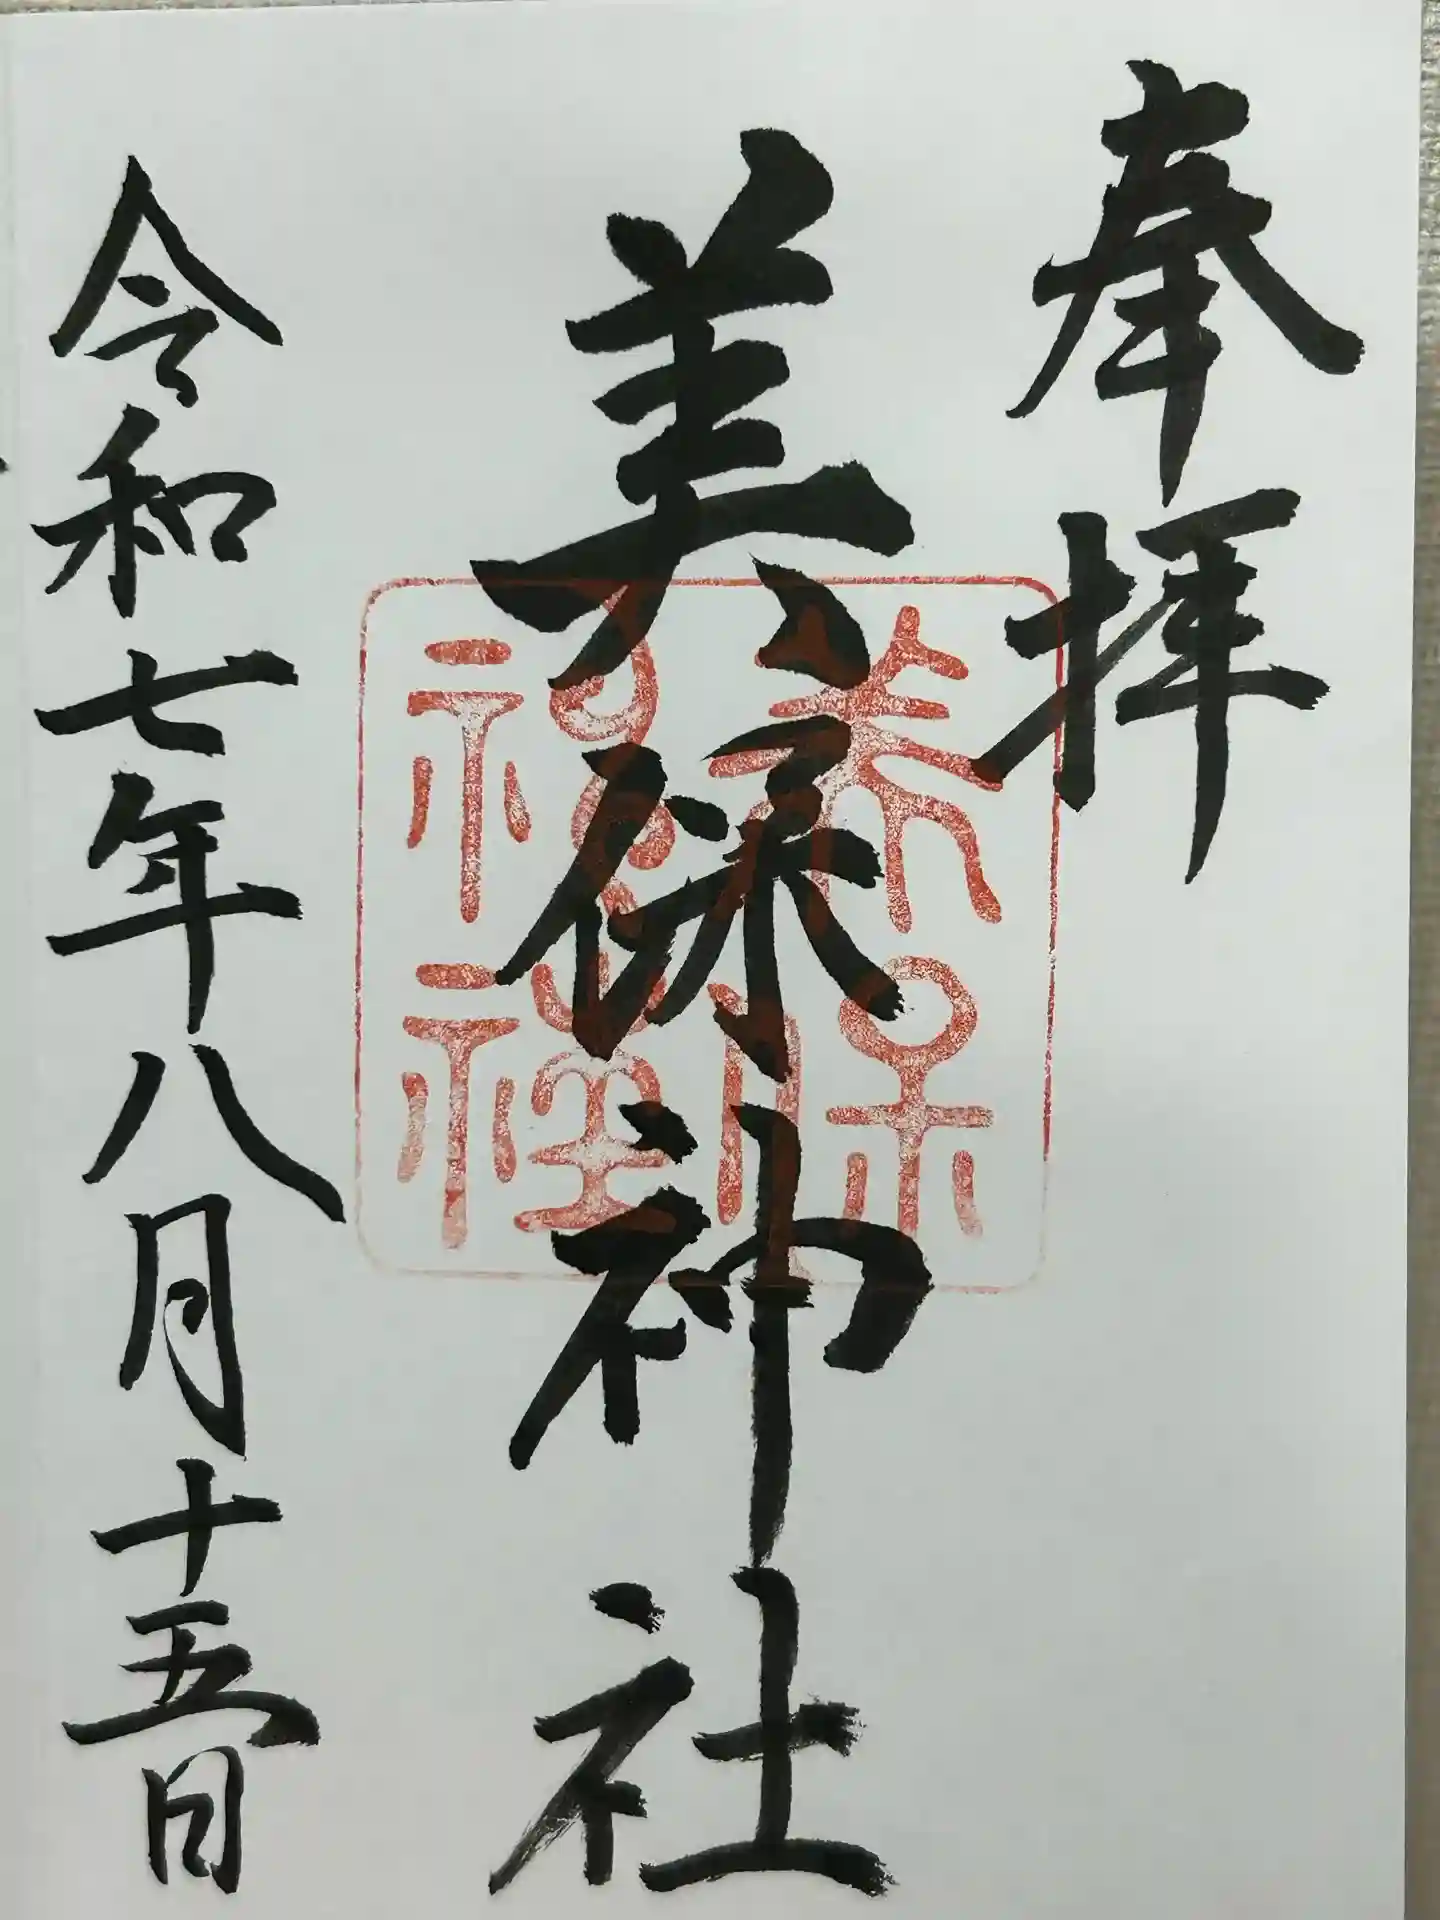 奉拝
美保神社
美保神社
令和七年八月十五日